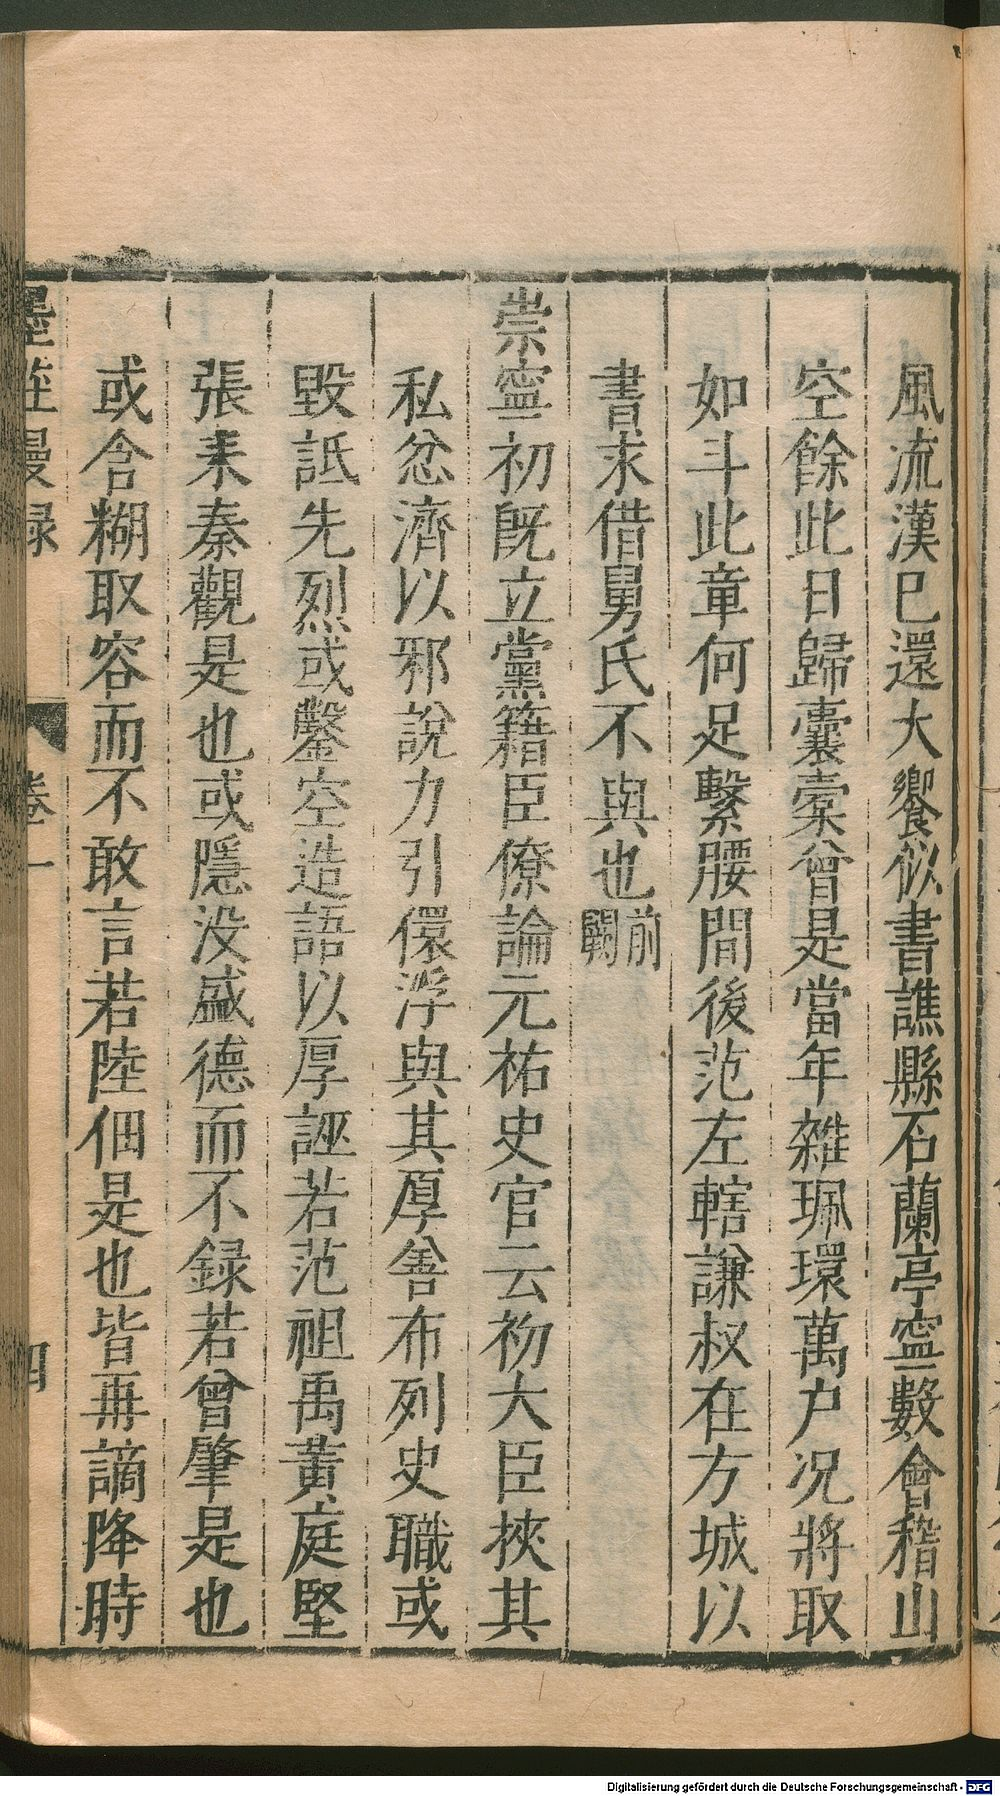 風流漢巳還大饗似書譙縣石蘭亭寧數會稽山
空餘此日歸囊槖曾是當年雜珮環萬户况將取
如斗此章何足繫腰間後范左轄謙叔在方城以
書求借舅氏不與也前闕
崇寧初旣立黨籍臣僚論元祐史官云初大臣挾其
私忿濟以邪說力引儇浮與其厚善布列史職或
毀詆先烈或鑿空造語以厚誣若范祖禹黃庭堅
張耒秦觀是也或隱没盛德而不録若曾肇是也
或含糊取容而不敢言若陸佃是也皆再謫降時
墨莊漫録 卷一 四
Digitalisierung gefördert durch die Deutsche Forschungsgemeinschaft - DFG